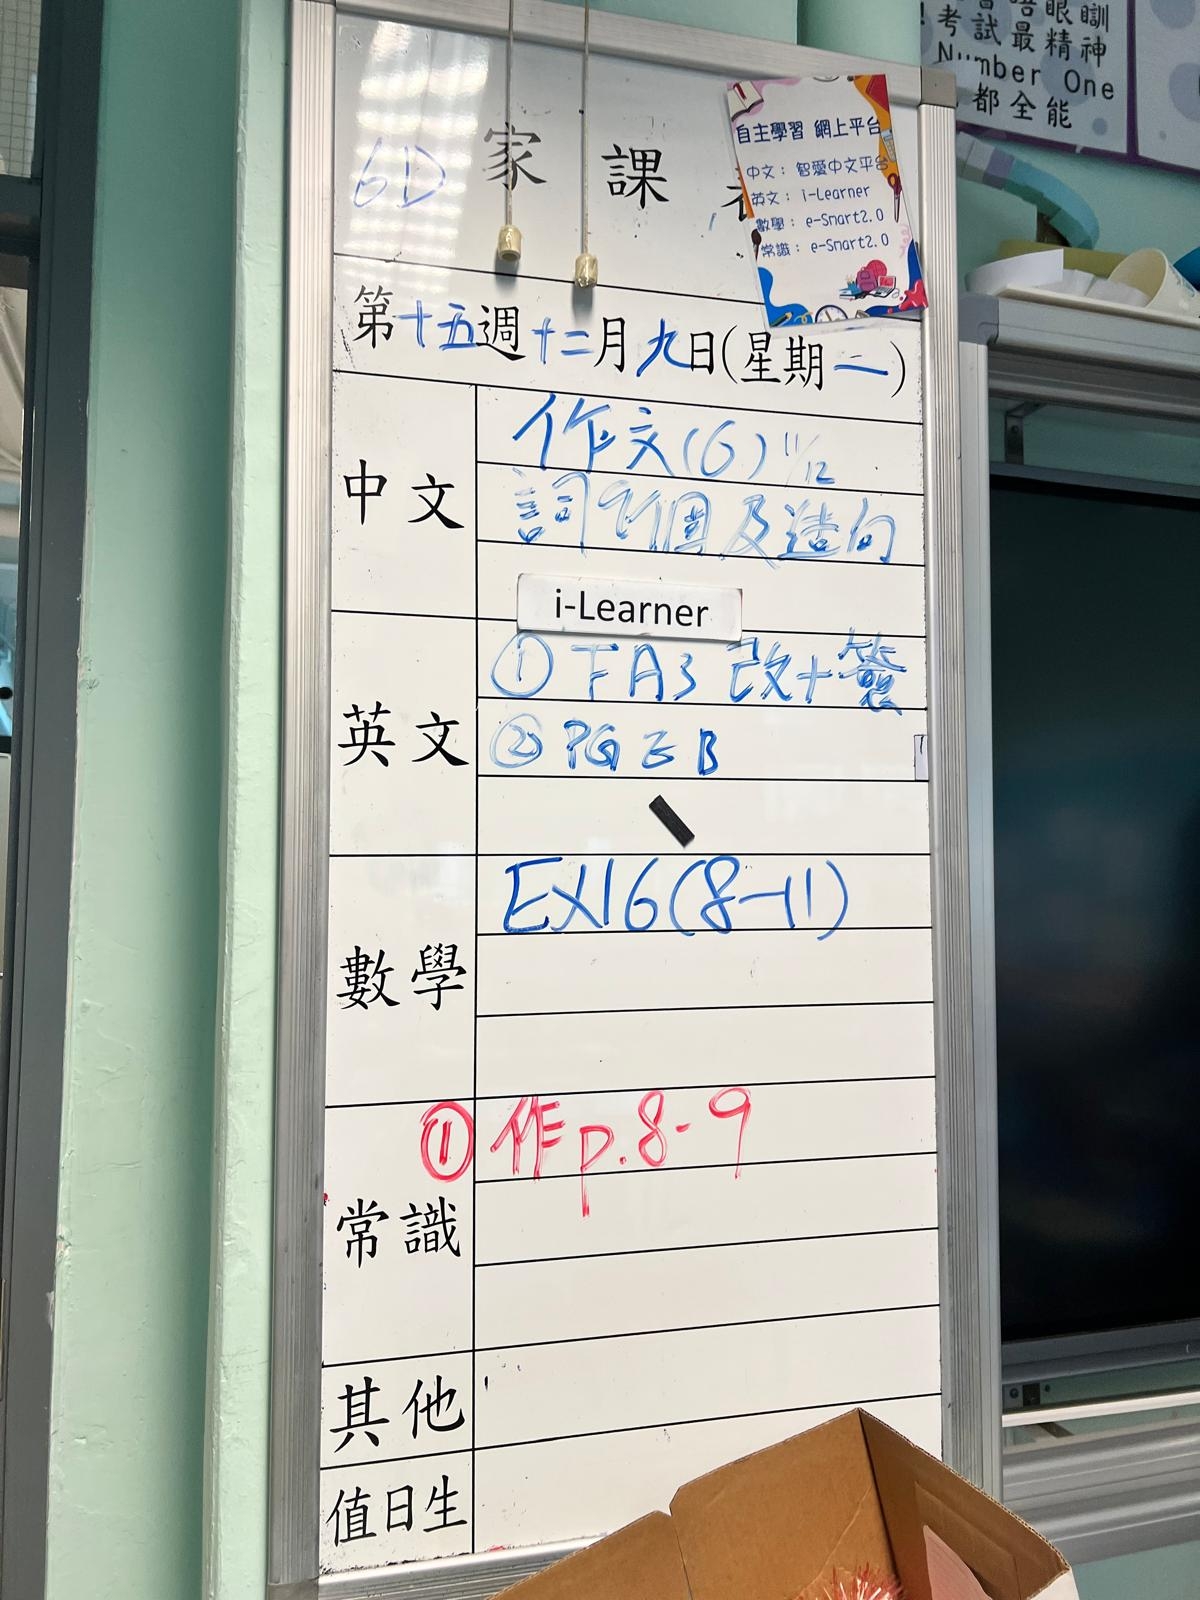 考試最精神
Number One
都全能
6D 家課
自主學習 網上平台
中文：智愛中文平台
英文：i-Learner
數學：e-Smart2.0
常識：e-Smart2.0
第十五週十二月九日(星期二)
中文
作文(6) 11/12
詞9個及造句
i-Learner
英文
① FA3 改+簽
② PGEB
數學
EX16(8-11)
常識
① 作p.8-9
其他
值日生